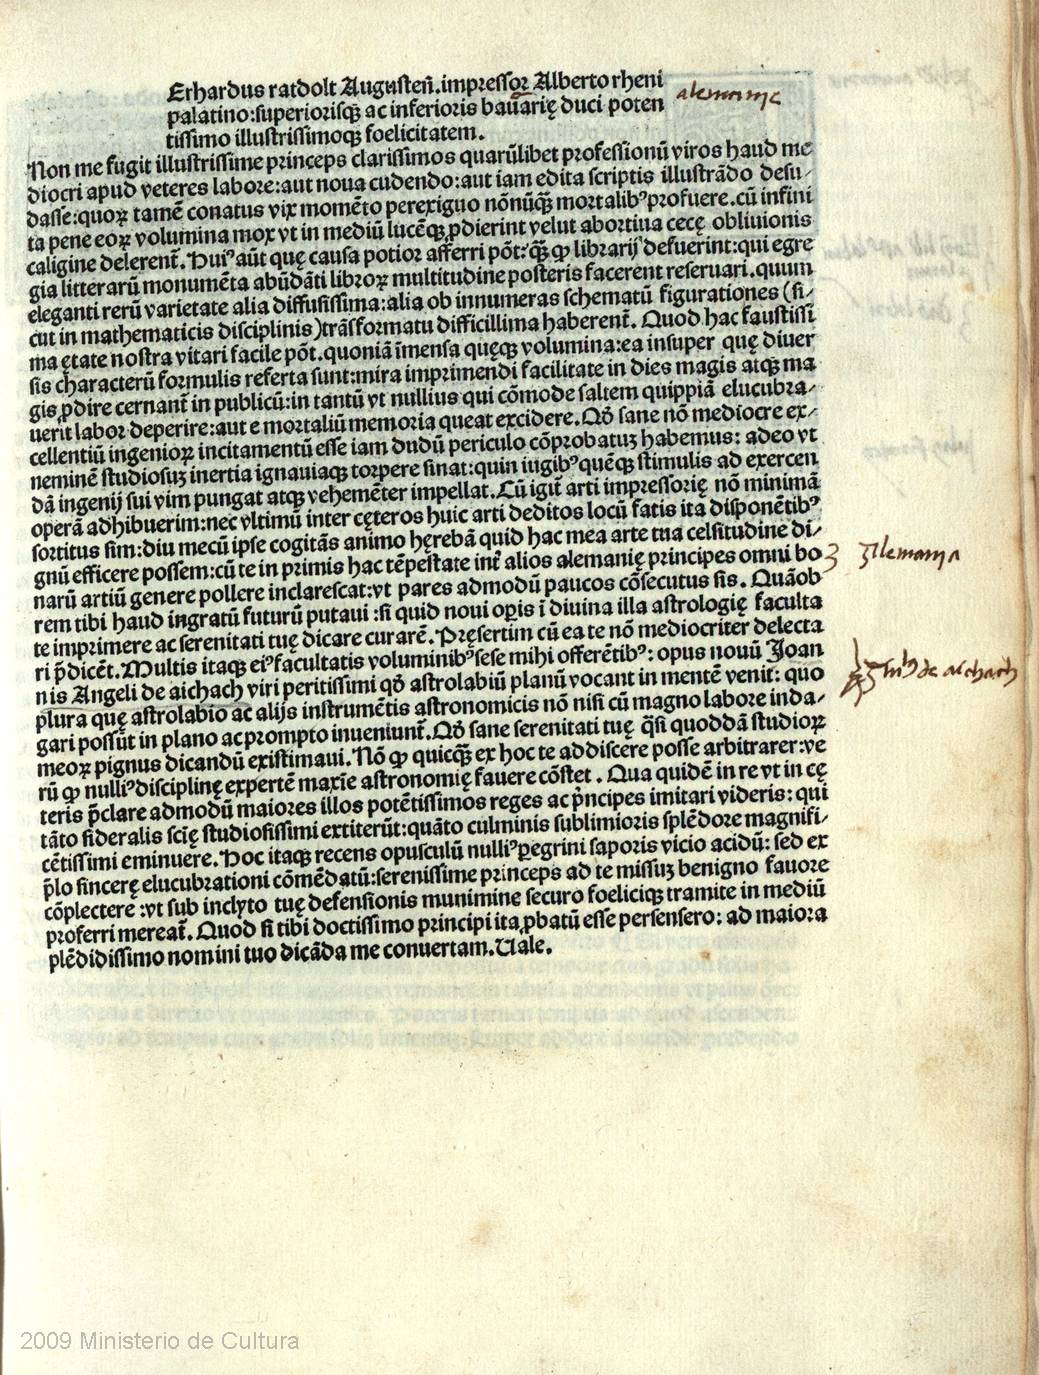 Erhardus ratdolt Augusteñ. impressor Alberto rheni
palatino: superiorisqꝫ ac inferioris bauarię duci poten
tissimo illustrissimoqꝫ foelicitatem.
alemanie
Non me fugit illustrissime princeps clarissimos quarūlibet professionū viros haud me
diocri apud veteres labore: aut noua cudendo: aut iam edita scriptis illustrādo desu⸗
dasse: quoꝝ tamē conatus vix momēto perexiguo nōnūqꝫ mortalibꝰ profuere. cū infini
ta pene eoꝝ volumina mox vt in mediū lucēqꝫ ꝓdierint velut abortiua cecę obliuionis
caligine delerent̄. Huiꝰ aūt quę causa potior afferri pōt: qꝫ̄ ꝙ librarij defuerint: qui egre
gia litterarū monumēta abūdāti libroꝝ multitudine posteris facerent reseruari. quum
eleganti rerū varietate alia diffusissima: alia ob innumeras schematū figurationes (si⸗
cut in mathematicis disciplinis) trāsformatu difficillima haberent̄. Quod hac faustissi
ma ętate nostra vitari facile pōt. quoniā īmensa quęqꝫ volumina: ea insuper quę diuer
sis characterū formulis referta sunt: mira imprimendi facilitate in dies magis atqꝫ ma
gis ꝓdire cernant̄ in publicū: in tantū vt nullius qui cōmode saltem quippiā elucubra⸗
uerit labor deperire: aut e mortaliū memoria queat excidere. Qð sane nō mediocre ex⸗
cellentiū ingenioꝝ incitamentū esse iam dudū periculo cōprobatuꝫ habemus: adeo vt
neminē studiosuꝫ inertia ignauiaqꝫ torpere sinat: quin iugibꝰ quēqꝫ stimulis ad exercen
dā ingenij sui vim pungat atqꝫ vehemēter impellat. Cū igit̄ arti impressorię nō minimā
operā adhibuerim: nec vltimū inter cęteros huic arti deditos locū fatis ita disponētibꝰ
sortitus sim: diu mecū ipse cogitās animo hęrebā quid hac mea arte tua celsitudine di⸗
gnū efficere possem: cū te in primis hac tēpestate int̄ alios alemanię principes omni bo
Alemania
narū artiū genere pollere inclarescat: vt pares admodū paucos cōsecutus sis. Quāob
rem tibi haud ingratū futurū putaui: si quid noui oꝑis ī diuina illa astrologię faculta
te imprimere ac serenitati tuę dicare curarē. Pręsertim cū ea te nō mediocriter delecta
ri p̄dicēt. Multis itaqꝫ eiꝰ facultatis voluminibꝰ sese mihi offerētibꝰ: opus nouū Joan
nis Angeli de aichach viri peritissimi qð astrolabiū planū vocant in mentē venit: quo
de aichach
plura quę astrolabio ac alijs instrumētis astronomicis nō nisi cū magno labore inda⸗
gari possūt in plano ac prompto inueniunt̄. Qð sane serenitati tuę q̄si quoddā studioꝝ
meoꝝ pignus dicandū existimaui. Nō ꝙ quicqꝫ̄ ex hoc te addiscere posse arbitrarer: ve
rū ꝙ nulliꝰ disciplinę expertē maxīe astronomię fauere cōstet. Qua quidē in re vt in cę
teris p̄clare admodū maiores illos potētissimos reges ac pⁱncipes imitari videris: qui
tāto sideralis scię studiosissimi extiterūt: quāto culminis sublimioris splēdore magnifi⸗
cētissimi eminuere. Hoc itaqꝫ recens opusculū nulliꝰ ꝑegrini saporis vicio acidū: sed ex
p̄lo sincerę elucubrationi cōmēdatū: serenissime princeps ad te missuꝫ benigno fauore
cōplectere: vt sub inclyto tuę defensionis munimine securo foelicíqꝫ tramite in mediū
proferri mereat̄. Quod si tibi doctissimo principi ita ꝓbatū esse persensero: ad maiora
splēdidissimo nomini tuo dicāda me conuertam. Uale.
2009 Ministerio de Cultura